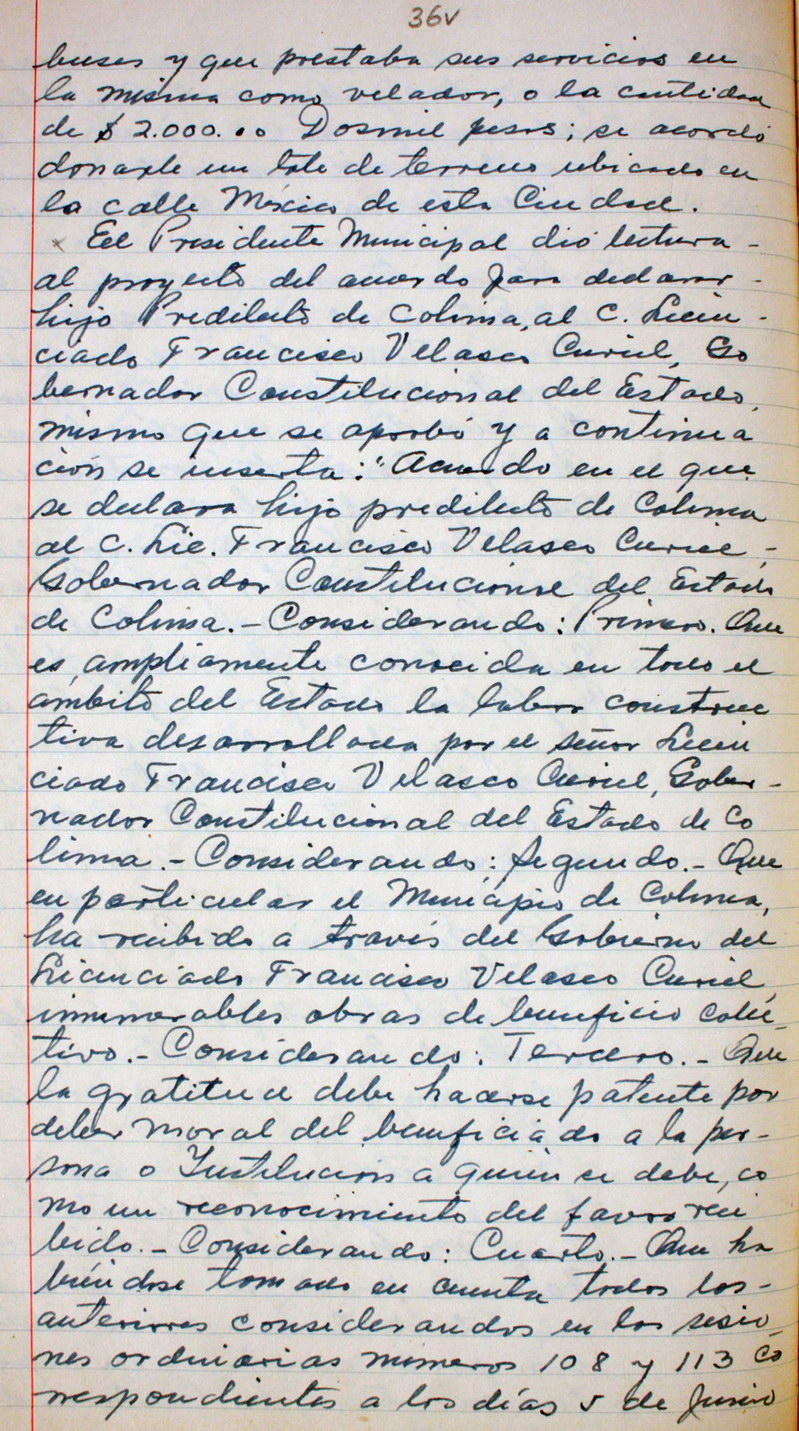 36v
buses y que prestaba sus servicios en
la misma como velador, o la cantidad
de $ 2.000.00 Dosmil pesos; se acordó
donarle un lote de terreno ubicado en
la calle México de esta Ciudad.
x Eel Presidente Municipal dió lectura -
al proyecto del acuerdo para declarar -
hijo Predilecto de Colima, al C. Licen -
ciado Francisco Velasco Curiel, Go
bernador Constitucional del Estado,
mismo que se aprobó y a continua
ción se inserta: "Acuerdo en el que
se declara hijo predilecto de Colima
al C. Lic. Francisco Velasco Curiel, -
Gobernador Constitucional del Estado
de Colima. - Considerando: Primero. Que
es ampliamente conocida en todo el
ámbito del Estado la labor construc
tiva desarrollada por el señor Licen
ciado Francisco Velasco Curiel, Gober -
nador Constitucional del Estado de Co
lima. - Considerando: Segundo. - Que
en particular el Municipio de Colima,
ha recibido a través del Gobierno del
Licenciado Francisco Velasco Curiel,
innumerables obras de beneficio colec
tivo. - Considerando: Tercero. - Que
la gratitud debe hacerse patente por
deber moral del beneficiado a la per -
sona o Institución a quien se debe, co
mo un reconocimiento del favor reci
bido. - Considerando: Cuarto. - Que ha
biéndose tomado en cuenta todos los -
anteriores considerandos en las sesio
nes ordinarias números 108 y 113 co
rrespondientes a los días 5 de Junio